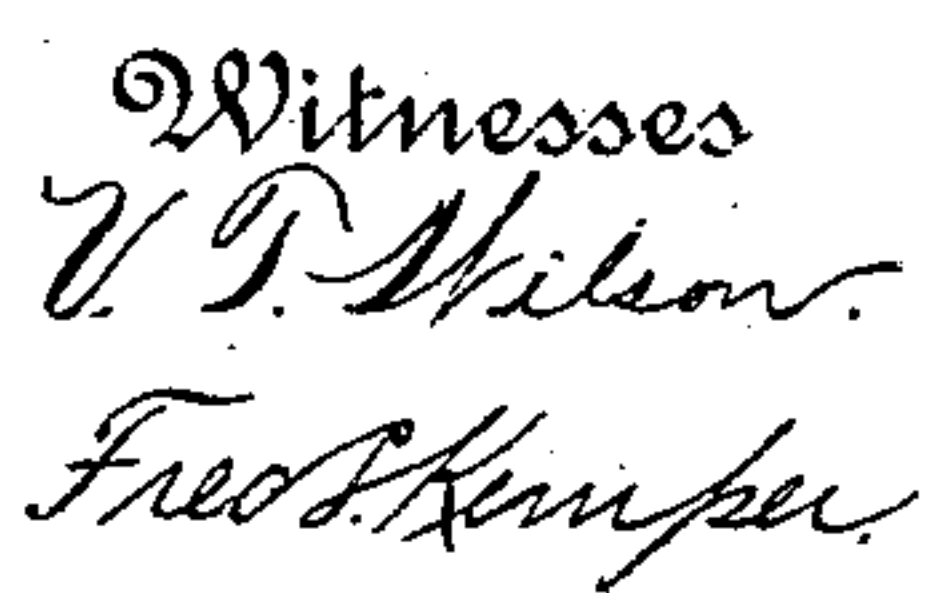 Witnesses
V. T. Wilson.
Fred S. Kemper.